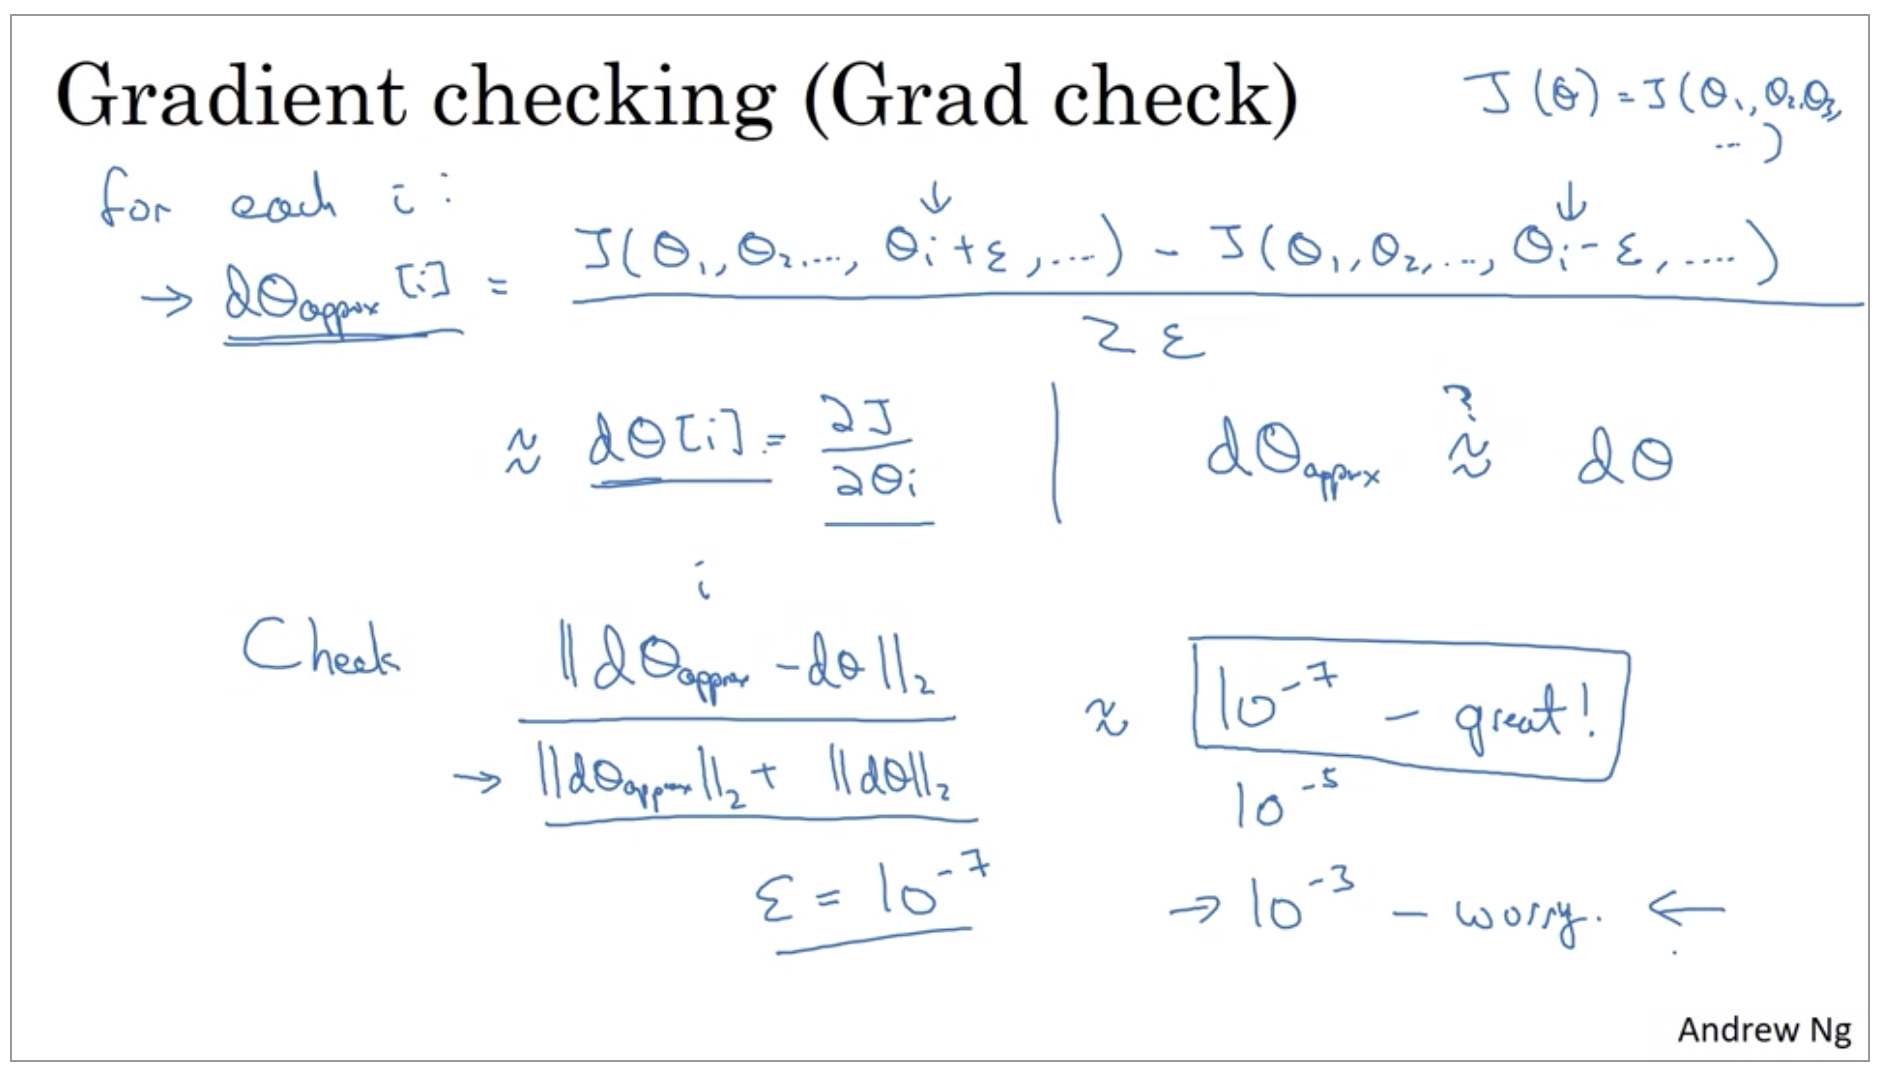 Gradient checking (Grad check)
J(θ) = J(θ₁, θ₂, θ₃,
...)
for each i :
→ dθapprox [i] = J(θ₁, θ₂, ..., θi + ε, ...) - J(θ₁, θ₂, ..., θi - ε, ....)
2ε
≈ dθ[i] = ∂J / ∂θi | dθapprox ≈? dθ
i
Check ||dθapprox - dθ||₂ ≈ 10⁻⁷ - great!
→ ||dθapprox||₂ + ||dθ||₂
10⁻⁵
ε = 10⁻⁷
→ 10⁻³ - worry. ←
Andrew Ng